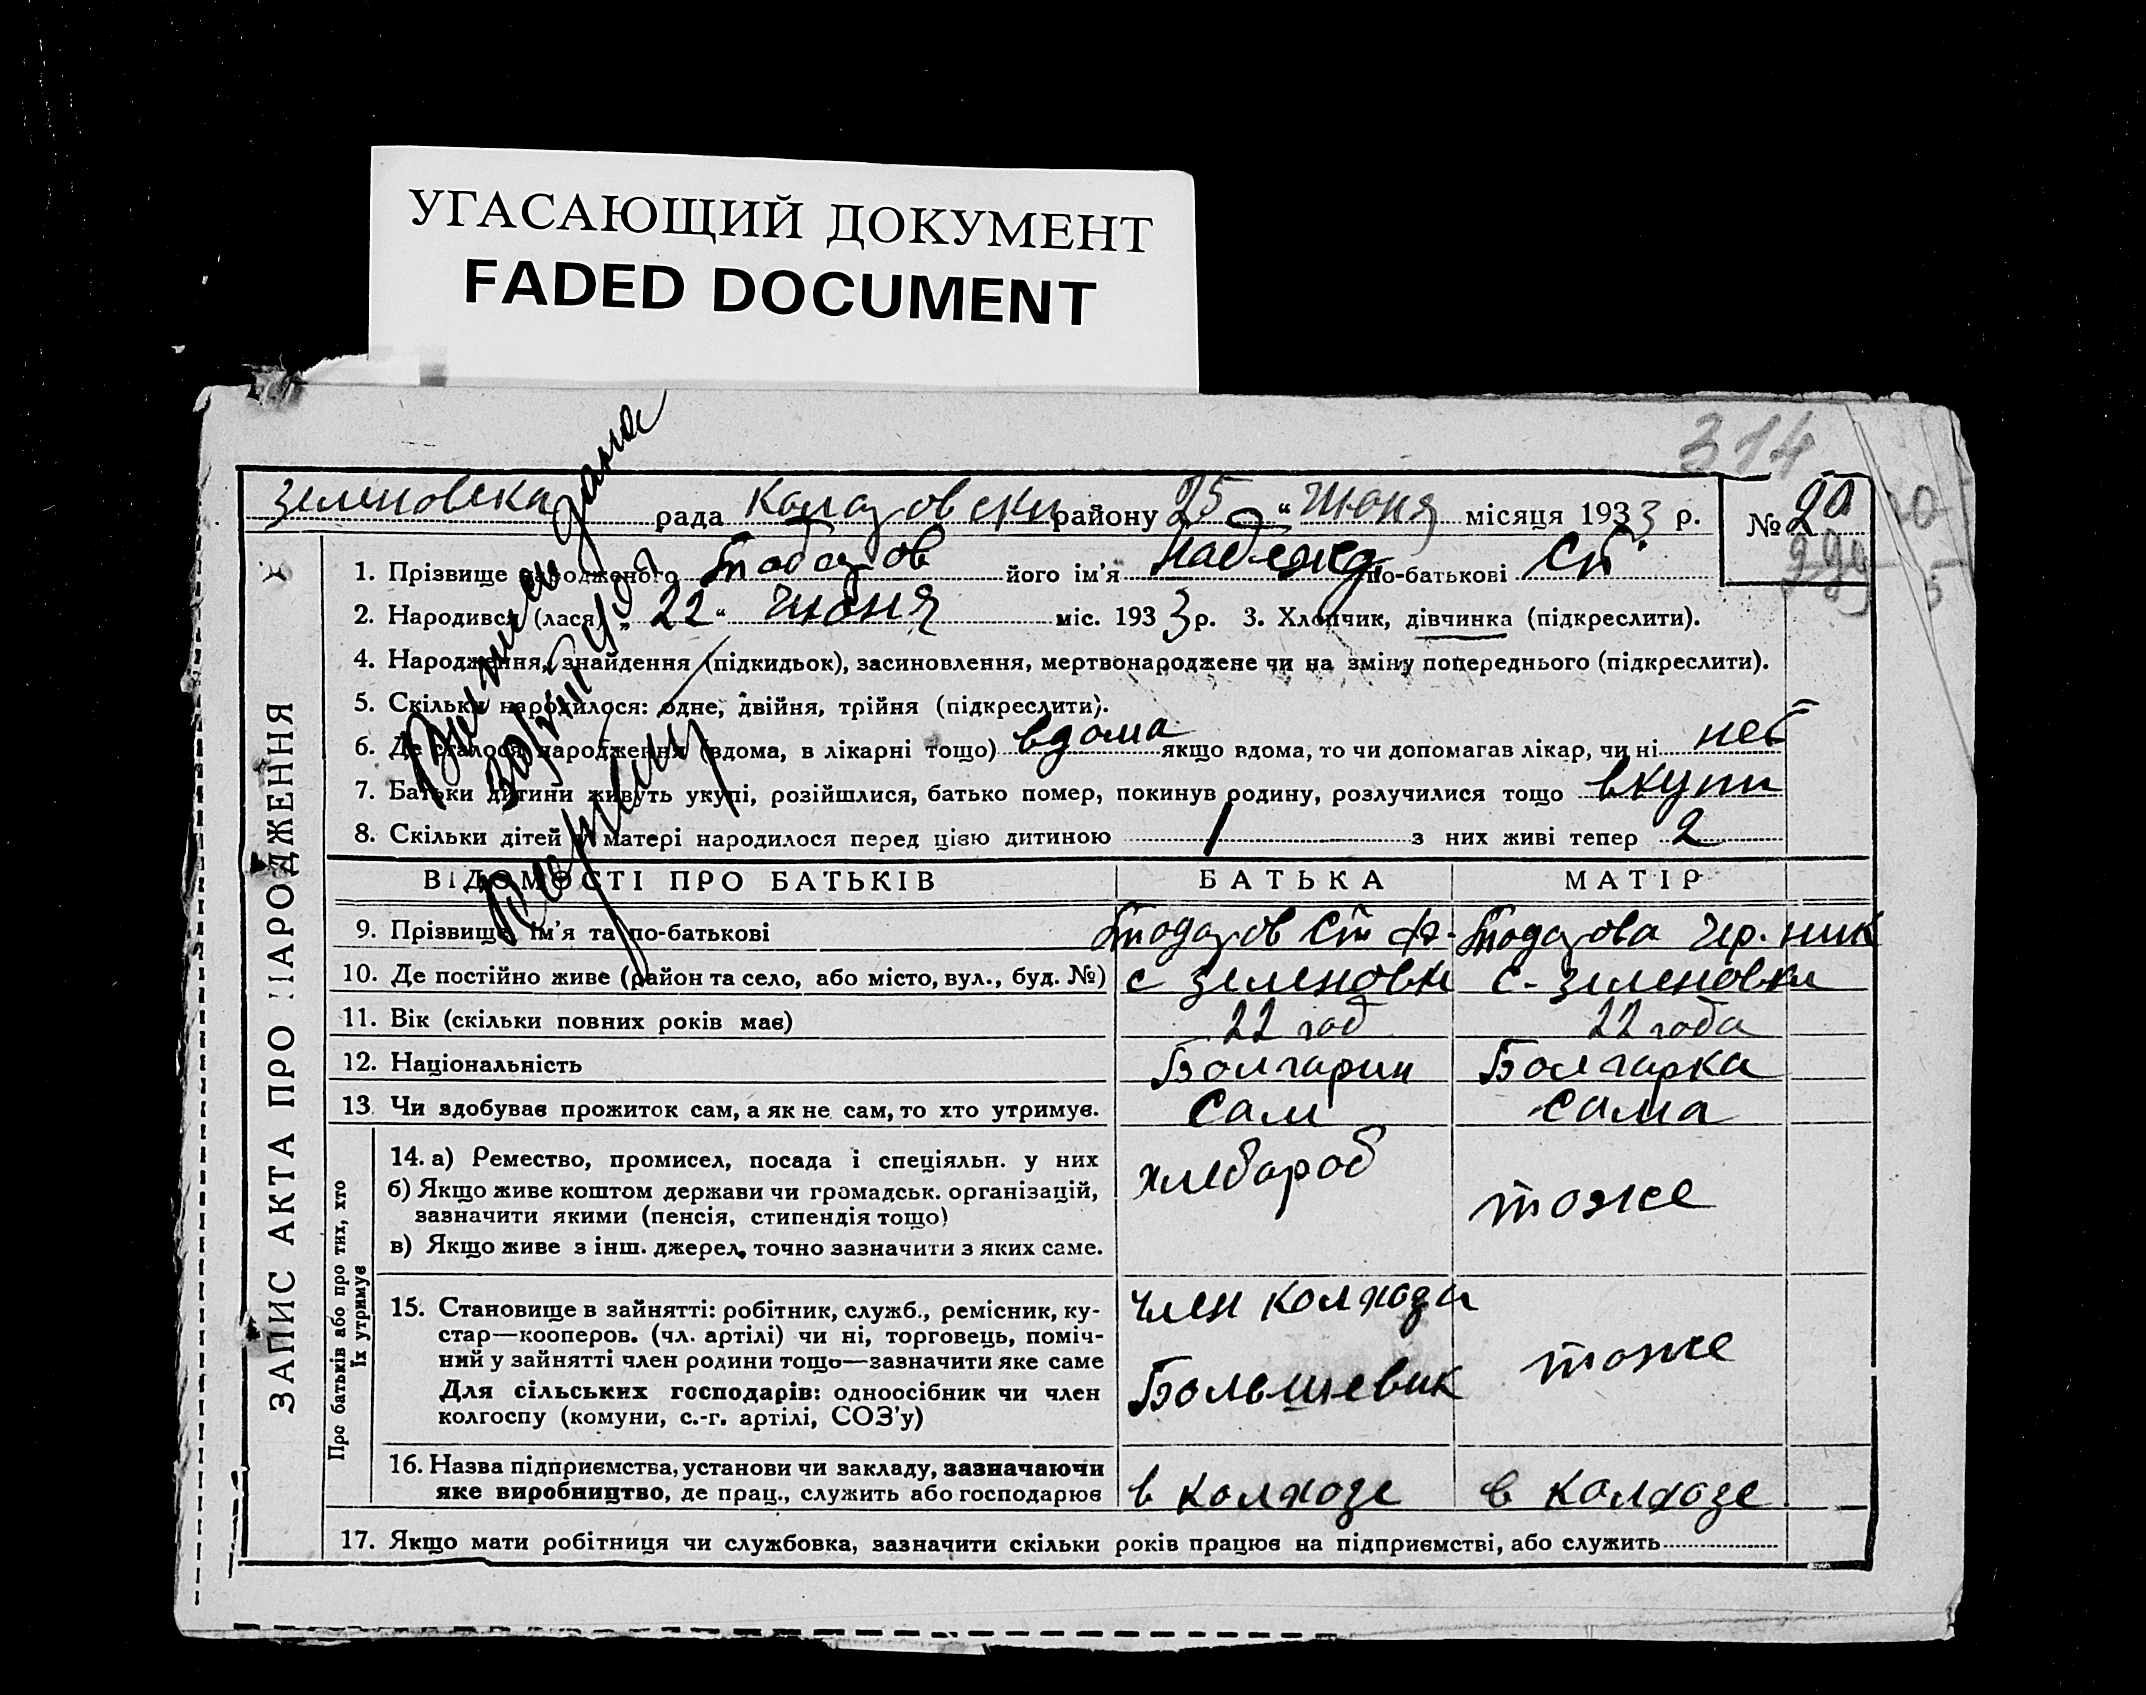 УГАСАЮЩИЙ ДОКУМЕНТ
FADED DOCUMENT
314
Зеленовска рада району 25 " Июня місяця 1933 р. № 20
1. Прізвище народженого Тодоров його ім'я Надежда по-батькові Ст.
2. Народився (лася) „ 22 “ Июня міс. 1933 р. 3. Хлопчик, дівчинка (підкреслити).
4. Народження, знайдення (підкидьок), засиновлення, мертвонароджене чи на зміну попереднього (підкреслити).
5. Скільки народилося: одне, двійня, трійня (підкреслити).
6. Де сталося народження (вдома, в лікарні тощо) вдома якщо вдома, то чи допомагав лікар, чи ні нет
7. Батьки дитини живуть укупі, розійшлися, батько помер, покинув родину, розлучилися тощо вкупи
8. Скільки дітей у матері народилося перед цією дитиною 1 з них живі тепер 2
ВІДОМОСТІ ПРО БАТЬКІВ БАТЬКА МАТІР
9. Прізвище, ім'я та по-батькові Тодоров Ст. Тодорова Ник
10. Де постійно живе (район та село, або місто, вул., буд. №) с Зеленовки с. Зеленовки
11. Вік (скільки повних років має) 22 год 22 года
12. Національність Болгарин Болгарка
13. Чи здобуває прожиток сам, а як не сам, то хто утримує. Сам сама
14. а) Ремество, промисел, посада і спеціяльн. у них хлебороб тоже
б) Якщо живе коштом держави чи громадськ. організацій,
зазначити якими (пенсія, стипендія тощо)
в) Якщо живе з інш. джерел, точно зазначити з яких саме.
15. Становище в зайнятті: робітник, служб., ремісник, ку-
стар—кооперов. (чл. артілі) чи ні, торговець, поміч-
ний у зайнятті член родини тощо—зазначити яке саме
Для сільських господарів: одноосібник чи член
колгоспу (комуни, с.-г. артілі, СОЗ'у)
член колхоза
Большевик
тоже
16. Назва підприємства, установи чи закладу, зазначаючи
яке виробництво, де прац., служить або господарює в колхозе в колхозе
17. Якщо мати робітниця чи службовка, зазначити скільки років працює на підприємстві, або служить
ЗАПИС АКТА ПРО НАРОДЖЕННЯ
Про батьків або про тих, хто
їх утримує